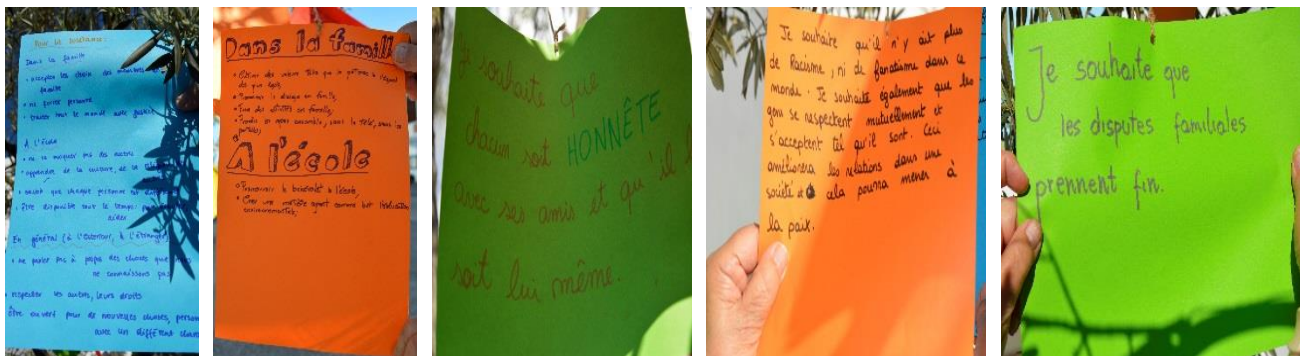 Dans la famille
accepter les choix des membres
famille
ne juger personne
traiter tout le monde avec justice
A l'école
ne se moquer pas des autres
apprendre de la culture, de
savoir que chaque personne est
être disponible tout le temps pour
aider
En général (à l'extérieur, à l'étranger)
ne parler pas à propos des choses que
ne connaissons pas
respecter les autres, leurs droits
être ouvert pour de nouvelles choses, person
avec un différent
Dans la famill
des que
Promouvoir le dialogue en famille;
Faire des activités en famille;
Prendre un repas ensemble, sans la télé, sans les
portables;
A l'école
Promouvoir le bénévolat à l'école;
Créer une matière ayant comme but l'éducation
environnementale;
Je souhaite que
chacun soit HONNÊTE
avec ses amis et qu'il
soit lui même.
Je souhaite qu'il n'y ait plus
de Racisme, ni de fanatisme dans ce
monde. Je souhaite également que les
gens se respectent mutuellement et
s'acceptent tel qu'il sont. Ceci
améliorera les relations dans une
société et cela pourra mener à
la paix.
Je souhaite que
les disputes familiales
prennent fin.